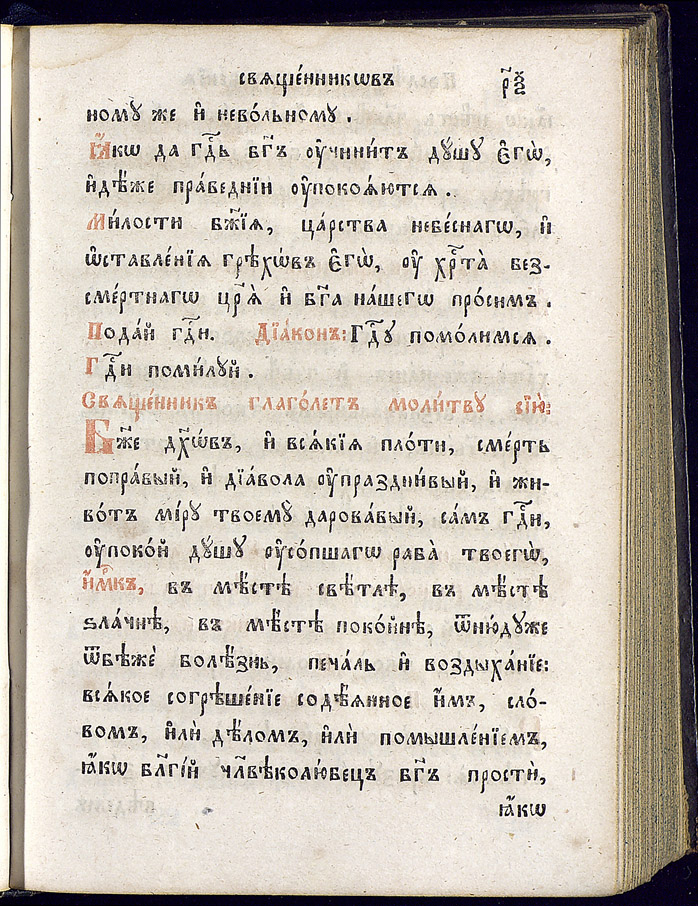 свѧще́нникѡвъ р҃ѯ
ному̀ же и҆ нево́льному .
Ꙗ҆́кѡ да гдⷭ҇ь бг҃ъ ѹ҆чини́тъ дꙋ́шꙋ є҆гѡ̀,
и҆дѣ́же пра́веднїи ѹ҆покоѧ́ютсѧ .
Ми́лости бж҃їѧ, ца́рства небе́снагѡ, и҆
ѡ҆ставле́нїѧ грѣхѡ́въ є҆гѡ̀, ѹ҆ хрⷭ҇та̀ без-
сме́ртнагѡ цр҃ѧ̀ и҆ бг҃а на́шегѡ про́симъ .
Пода́й гдⷭ҇и. Дїа́конъ: Гдⷭ҇ꙋ помо́лимсѧ .
Гдⷭ҇и поми́лꙋй .
Свѧще́нникъ глаго́летъ моли́твꙋ сїю̀:
Бж҃е дх҃ѡ́въ, и҆ всѧ́кїѧ пло́ти, сме́рть
попра́вый, и҆ дїа́вола ѹ҆праздни́вый, и҆ жи-
во́тъ мі́рꙋ твоемꙋ̀ дарова́вый, са́мъ гдⷭ҇и,
ѹ҆поко́й дꙋ́шꙋ ѹ҆со́пшагѡ раба̀ твоегѡ̀,
и҆́м̾къ, въ мѣ́стѣ свѣ́тлѣ, въ мѣ́стѣ
ѕла́чнѣ, въ мѣ́стѣ поко́йнѣ, ѿню́дꙋже
ѿбѣжѐ болѣ́знь, печа́ль и҆ воздыха́нїе:
всѧ́кое согрѣше́нїе содѣ́ѧнное и҆́мъ, сло́-
вомъ, и҆лѝ дѣ́ломъ, и҆лѝ помышле́нїемъ,
ꙗ҆́кѡ бл҃гі́й чл҃вѣколю́бецъ бг҃ъ простѝ,
ꙗ҆́кѡ